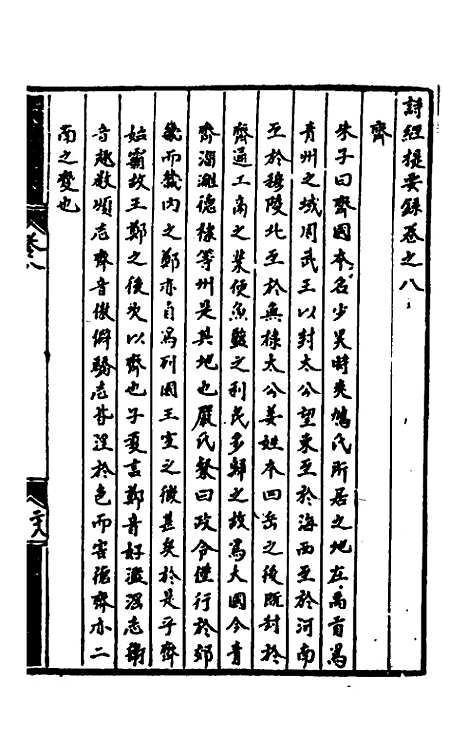 詩經提要錄卷之八
齊
朱子曰齊國本名少昊時爽鳩氏所居之地在禹貢為
青州之域周武王以封太公望東至於海西至於河南
至於穆陵北至於無棣太公姜姓本四岳之後既封於
齊通工商之業便魚鹽之利民多歸之故為大國今青
齊淄濰德棣等州是其地也嚴氏粲曰政令僅行於郊
畿而畿內之鄭亦自為列國王室之微甚矣於是乎齊
始霸故王鄭之後次以齊也子夏言鄭音好濫淫志衛
音趨數煩志齊音傲僻驕志皆淫於色而害德齊亦二
南之變也
卷八